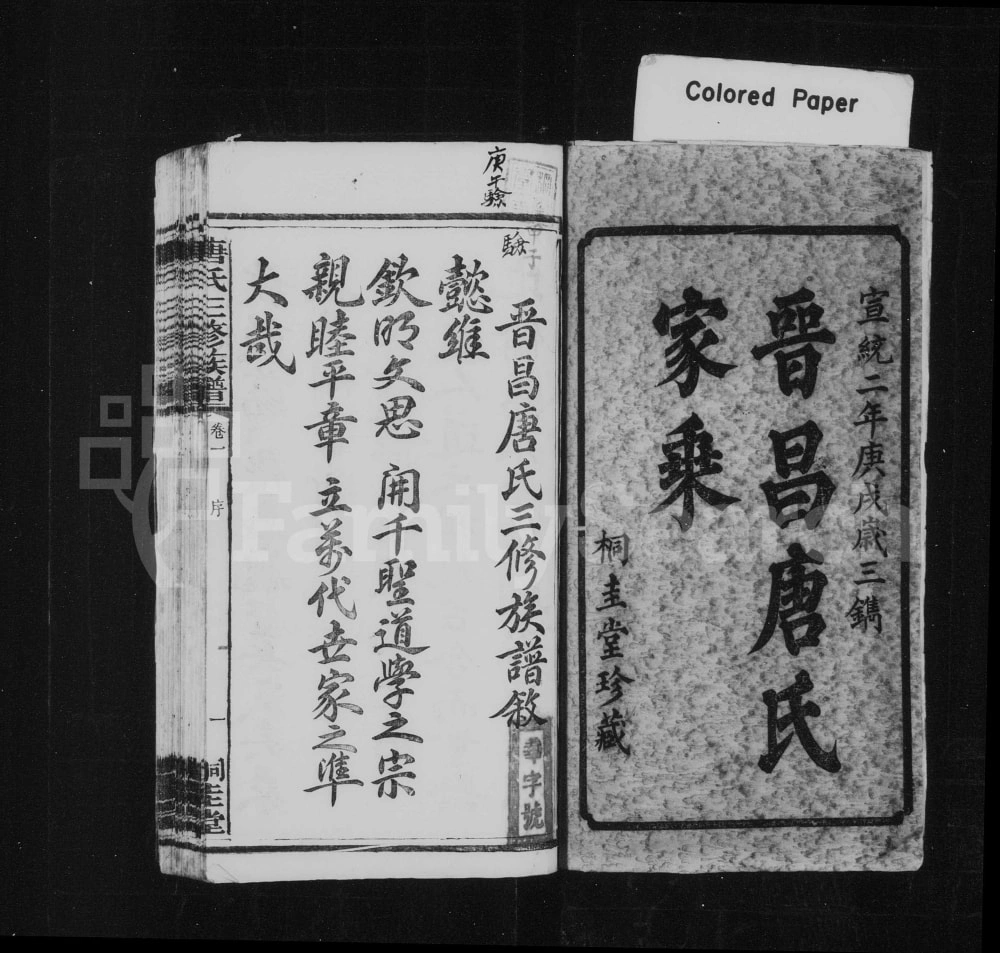 Colored Paper
宣統二年庚戌歲三鐫
晉昌唐氏
家乘
桐圭堂珍藏
庚午驗
驗
甲子
晋昌唐氏三修族譜敘
字號
懿維
欽明文思 開千聖道學之宗
親睦平章 立萬代世家之準
大哉
唐氏三修族譜
卷一
序
一
桐圭堂
FamilySearch